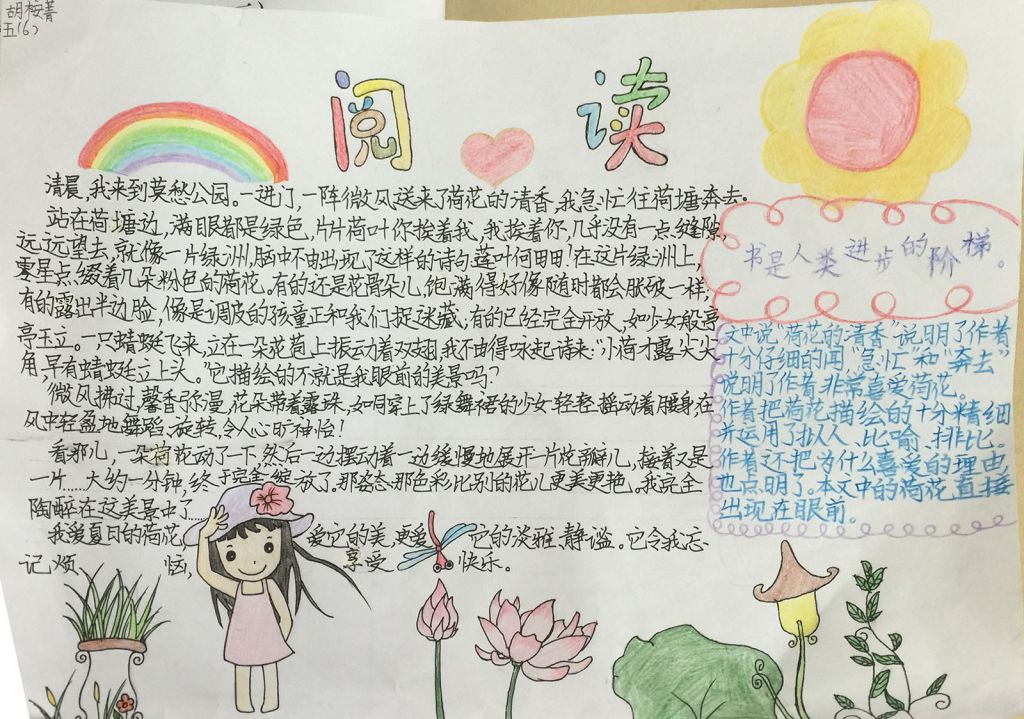 胡桉菁
五(6)
阅读
清晨,我来到莫愁公园。一进门,一阵微风送来了荷花的清香,我急忙往荷塘奔去。
站在荷塘边,满眼都是绿色,片片荷叶你挨着我,我挨着你,几乎没有一点缝隙,
远远望去,就像一片绿洲,脑中不由出现了这样的诗句,莲叶何田田!在这片绿洲上,
零星点缀着几朵粉色的荷花。有的还是花骨朵儿,饱满得好像随时都会胀破一样,
有的露出半边脸,像是调皮的孩童正和我们捉迷藏,有的已经完全开放,如少女般亭
亭玉立。一只蜻蜓飞来,立在一朵花苞上振动着双翅,我不由得咏起诗来:“小荷才露尖尖
角,早有蜻蜓立上头。”它描绘的不就是我眼前的美景吗?
微风拂过,馨香弥漫,花朵带着露珠,如同穿上了绿舞裙的少女轻轻摇动着腰身,在
风中轻盈地舞蹈、旋转,令人心旷神怡!
看那儿,一朵荷花动了一下,然后一边摆动着一边缓慢地展开一片花瓣儿,接着又是
一片……大约一分钟,终于完全绽放了。那姿态那色彩比别的花儿更美更艳。我完全
陶醉在这美景中了……
我爱夏日的荷花,爱它的美,更爱它的淡雅、静谧。它令我忘
记烦恼,享受快乐。
书是人类进步的阶梯。
文中说“荷花的清香”说明了作者
十分仔细的闻“急忙”和“奔去”
说明了作者非常喜爱荷花。
作者把荷花描绘的十分精细
并运用了拟人、比喻、排比。
作者还把为什么喜爱的理由,
也点明了。本文中的荷花直接
出现在眼前。